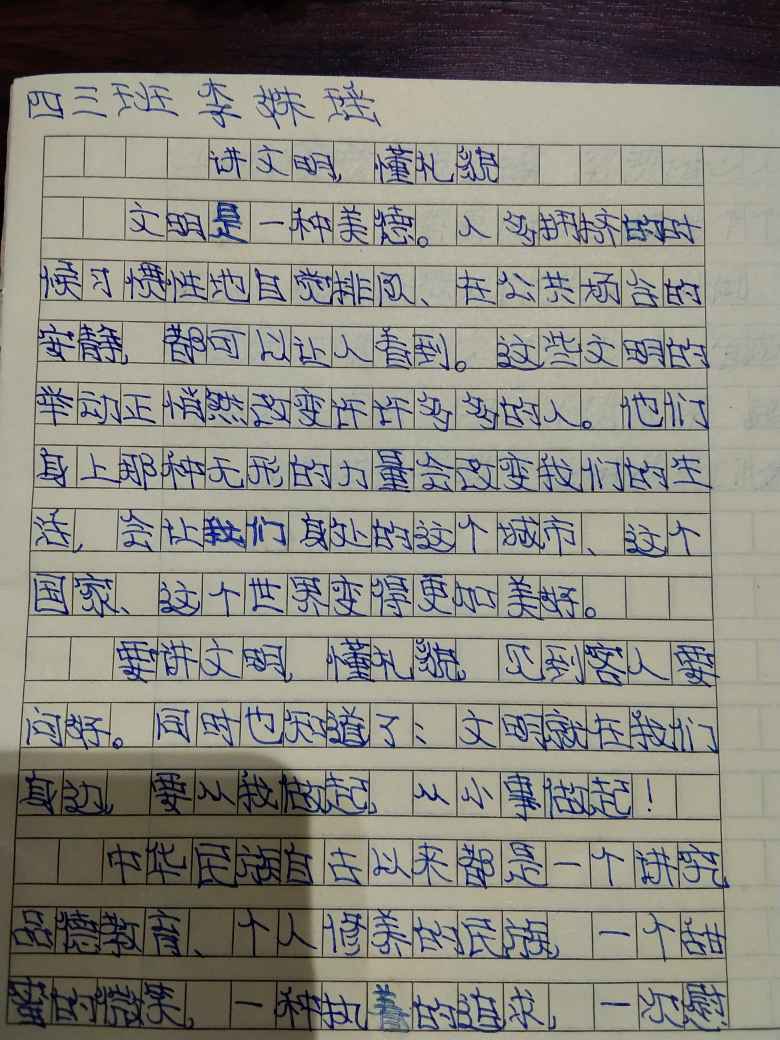 四三班 李姝瑶
讲文明，懂礼貌
文明是一种美德。人多拥挤的时
候习惯性地自觉排队、在公共场合的
安静，都可以让人看到。这些文明的
举动正悄然改变许许多多的人。他们
身上那种无形的力量会改变我们的生
活，会让我们身处的这个城市、这个
国家、这个世界变得更加美好。
要讲文明，懂礼貌，见到客人要
问好。同时也知道了：文明就在我们
身边，要从我做起，从小事做起！
中华民族自古以来都是一个讲究
品德教育、个人修养的民族，一个甜
蜜的微笑，一种执着的追求，一次